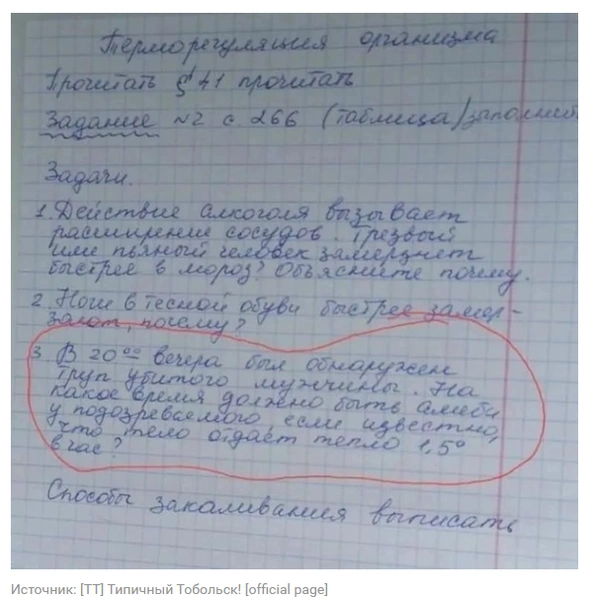 Терморегуляция организма
Прочитать § 41 прочитать
Задание №2 с. 266 (таблица) заполнит
Задачи.
1. Действие алкоголя вызывает
расширение сосудов. Трезвый
или пьяный человек замерзнет
быстрее в мороз? Объясните почему.
2. Ноги в тесной обуви быстрее замер-
зают, почему?
3. В 20⁰⁰ вечера был обнаружен
труп убитого мужчины. На
какое время должно быть алиби
у подозреваемого, если известно,
что тело отдает тепло 1,5°
в час?
Способы закаливания выписать
Источник: [ТТ] Типичный Тобольск! [official page]